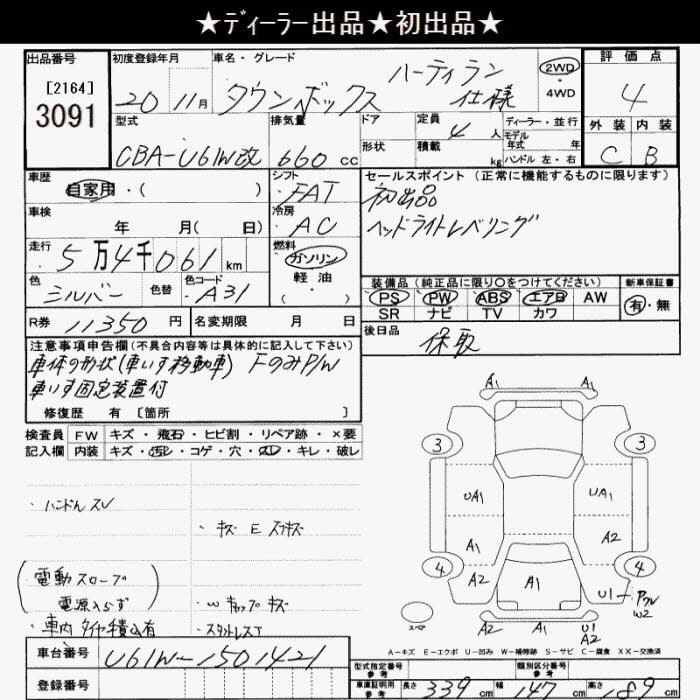 ★ディーラー出品★初出品★
出品番号
[2164]
3091
初度登録年月
20 11月
車名・グレード
タウンボックス
ハーティラン
仕様
2WD
・
4WD
評価点
4
外装 内装
C B
型式
CBA-U61W改
排気量
660 cc
ドア
形状
定員 4 人
積載 kg
ディーラー・並行
モデル
年式 年
ハンドル 左・右
車歴
自家用・( )
シフト
FAT
車検
年 月( 日)
冷房
AC
走行
5万4千061km
燃料
ガソリン
軽油
( )
色
シルバー
色替
色コード
A31
R券 11350 円
名変期限 月 日
セールスポイント(正常に機能するものに限ります)
初出品
ヘッドライトレベリング
装備品(純正品に限り○をつけてください)
PS PW ABS エアB AW
SR ナビ TV カワ
新車保証書
有・無
後日品
保取
注意事項申告欄(不具合内容等は具体的に記入して下さい)
車体の形状(車いす移動車) FのみP/W
車いす固定装置付
修復歴 有 [箇所 ]
検査員
記入欄
FW キズ・飛石・ヒビ割・リペア跡・×要
内装 キズ・汚レ・コゲ・穴・スレ・キレ・破レ
・ハンドルスレ
・キズ E スリキズ
(電動スロープ
電源入らず)
・車内タイヤ積込有
・Wキャップキズ
・スタットレスT
A1
3 3
UA1 UA1
A1 A2
4 4
A2 A1 U1 W2
スペア
A2 A1 U1
A2
A-キズ E-エクボ U-凹み W-補修跡 S-サビ C-腐食 XX-交換済
車台番号
U61W-1501421
登録番号
型式指定番号
参考
類別区分番号
参考
車庫証明用
参考
長さ 339 cm
幅 147 cm
高さ 189 cm